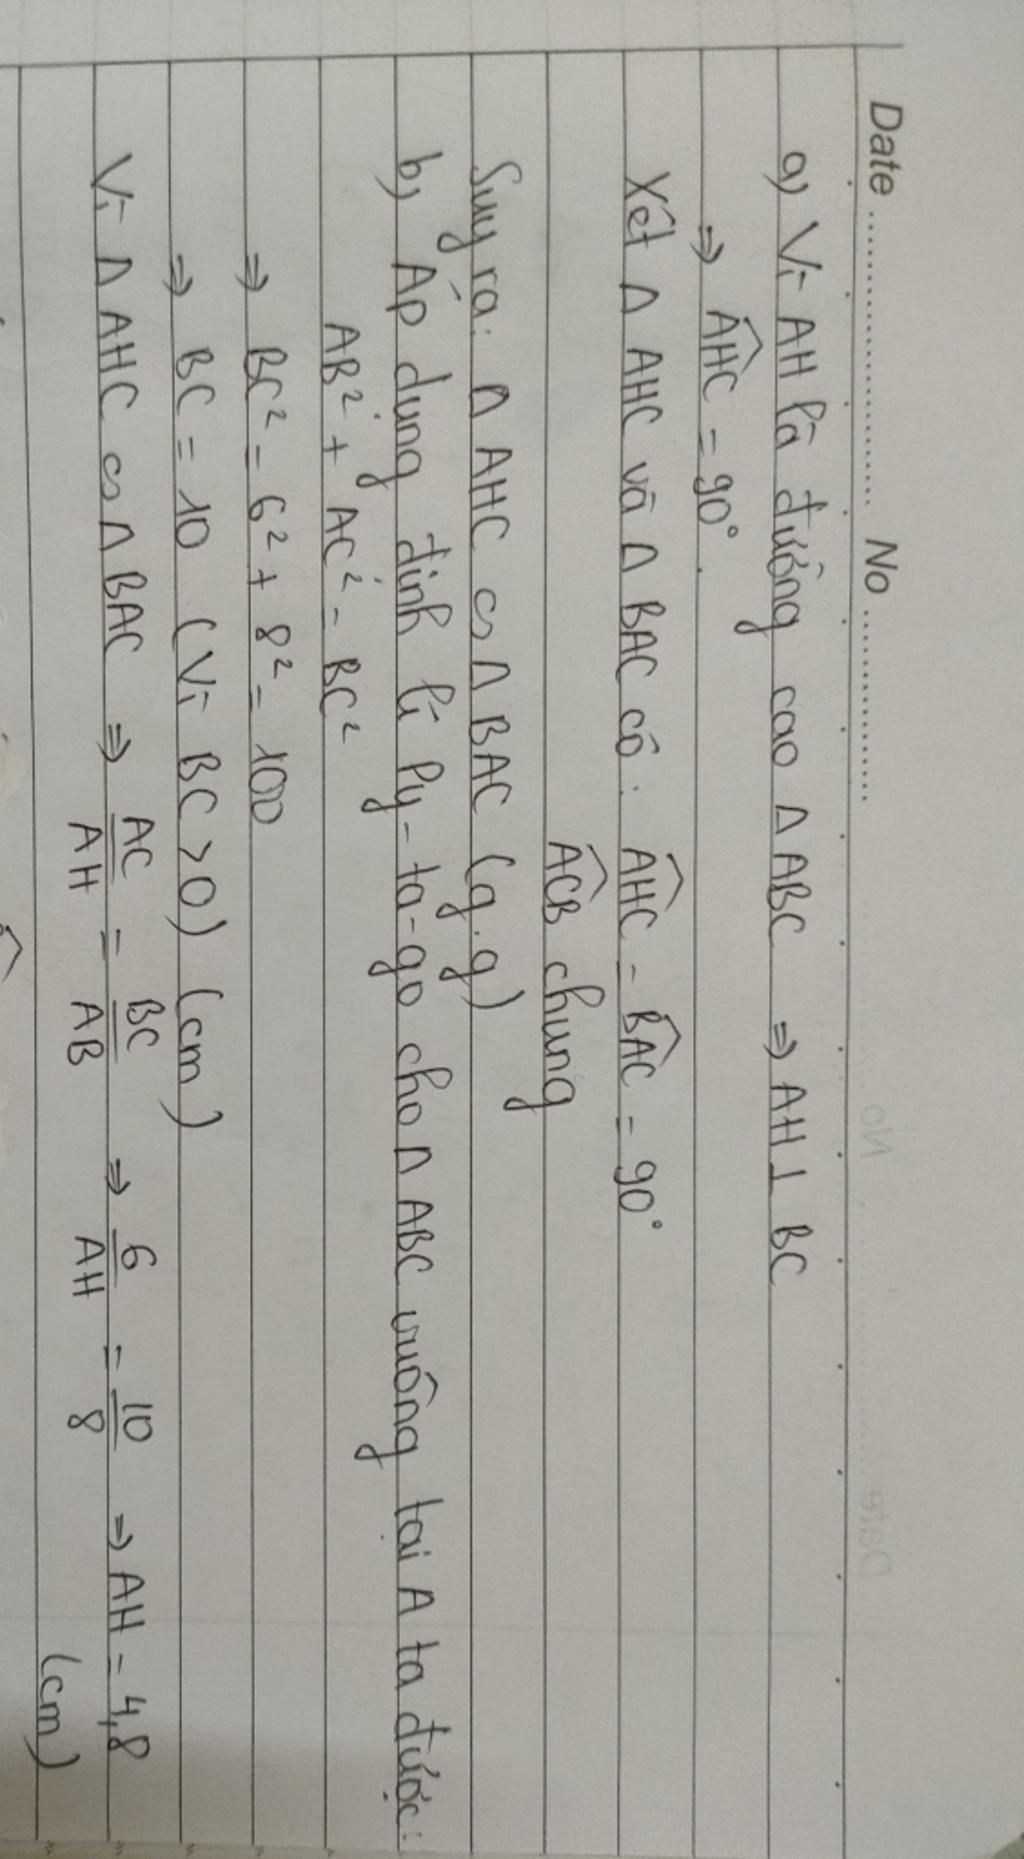 Date .................... No ..............
a) Vì AH là đường cao Δ ABC ⇒ AH ⊥ BC
⇒ \widehat{AHC} = 90°.
Xét Δ AHC và Δ BAC có: \widehat{AHC} = \widehat{BAC} = 90°
\widehat{ACB} chung
Suy ra: Δ AHC ∽ Δ BAC (g.g)
b) Áp dụng định lí Py-ta-go cho Δ ABC vuông tại A ta được:
AB² + AC² = BC²
⇒ BC² = 6² + 8² = 100
⇒ BC = 10 (Vì BC > 0) (cm)
Vì Δ AHC ∽ Δ BAC ⇒ AC/AH = BC/AB ⇒ 6/AH = 10/8 ⇒ AH = 4,8
(cm)